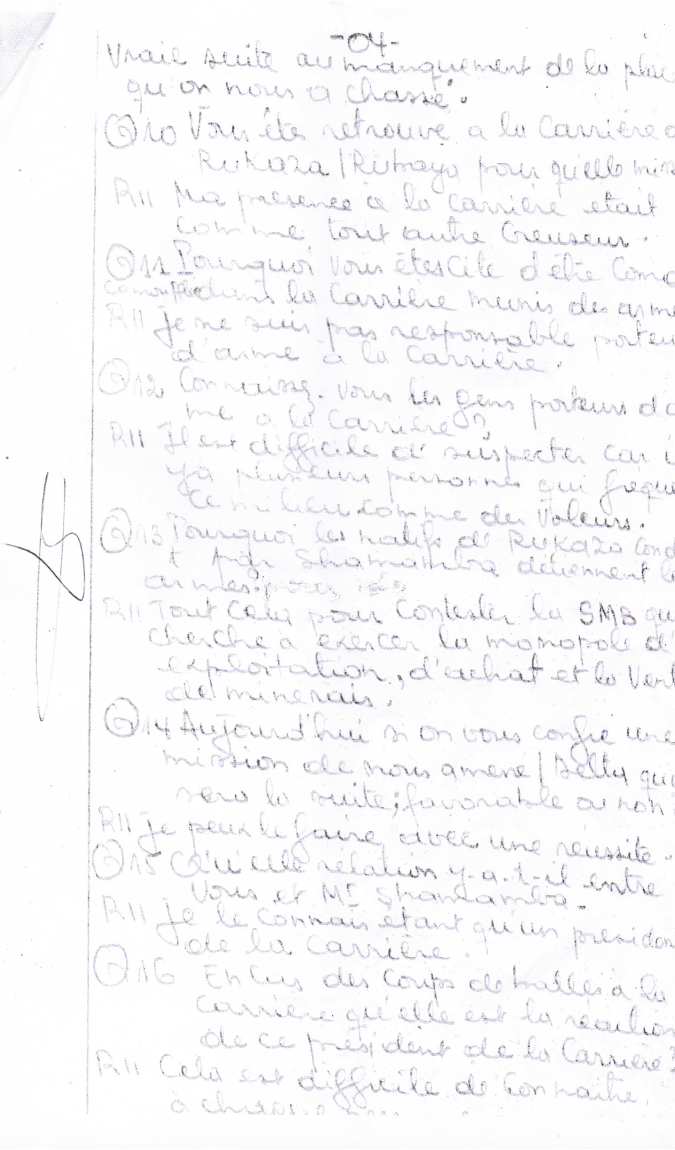 -04-
Vraie suite au manquement de la place
qu'on nous a chassé.
Q10 Vous êtes retrouvé à la Carrière
RUKAZA/Rubaya pour quelle miss
R// Ma présence à la carrière était
comme tout autre Creuseur.
Q11 Pourquoi vous êtes Cité d'être
dans la Carrière munis des arme
R// Je ne suis pas responsable porteu
d'arme à la Carrière.
Q12 Connaissez-vous les gens porteurs d'a
me à la Carrière?
R// Il est difficile de suspecter car i
ya plusieurs personnes qui fréque
Ce milieu comme des voleurs.
Q13 Pourquoi les natifs de RUKAZA Cond
t par Shamamba détiennent le
armes
R// Tout Cela pour Contester la SMB qu
cherche à exercer la monopole d'
exploitation, d'achat et la Vent
de minerais.
Q14 Aujourd'hui si on vous confie une
mission de nous amené/Delta que
sera la suite; favorable ou non
R// Je peux le faire avec une réussite.
Q15 Qu'elle relation y-a-t-il entre
Vous et Mr Shamamba.
R// Je le connais étant qu'un présiden
de la Carrière.
Q16 En Cas des Coups de balles à la
Carrière qu'elle est la réaction
de ce président de la Carrière?
R// Cela est difficile de Connaitre,